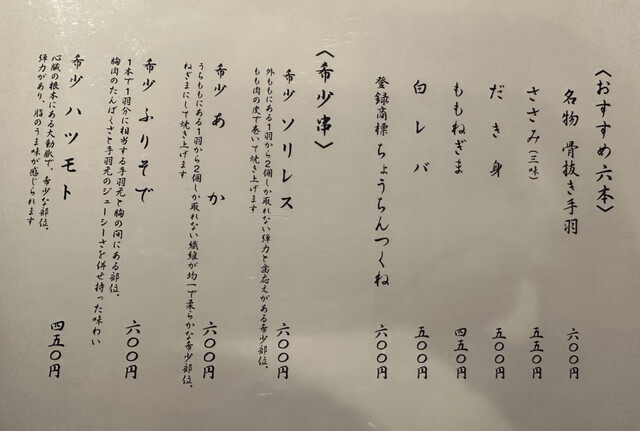 〈おすすめ六本〉
名物 骨抜き手羽 六〇〇円
ささみ(三味) 五五〇円
だき身 五〇〇円
ももねぎま 四五〇円
白レバ 五〇〇円
登録商標 ちょうちんつくね 六〇〇円
〈希少串〉
希少 ソリレス 六〇〇円
外ももにある1羽から2個しか取れない弾力と歯応えがある希少部位。
もも肉の皮で巻いて焼き上げます
希少 あか 六〇〇円
うちももにある1羽から2個しか取れない繊維が均一で柔らかな希少部位。
ねぎまにして焼き上げます
希少 ふりそで 六〇〇円
1本で1羽分に相当する手羽元と胸の間にある部位。
胸肉のたんぱくさと手羽元のジューシーさを併せ持った味わい
希少 ハツモト 四五〇円
心臓の根本にある大動脈で、希少な部位。
弾力があり、脂のうま味が感じられます